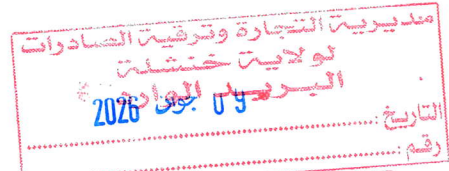 مديرية التجارة وترقية الصادرات
لولاية خنشلة
البريد الوارد
09 جوان 2026
التاريخ:
رقم: